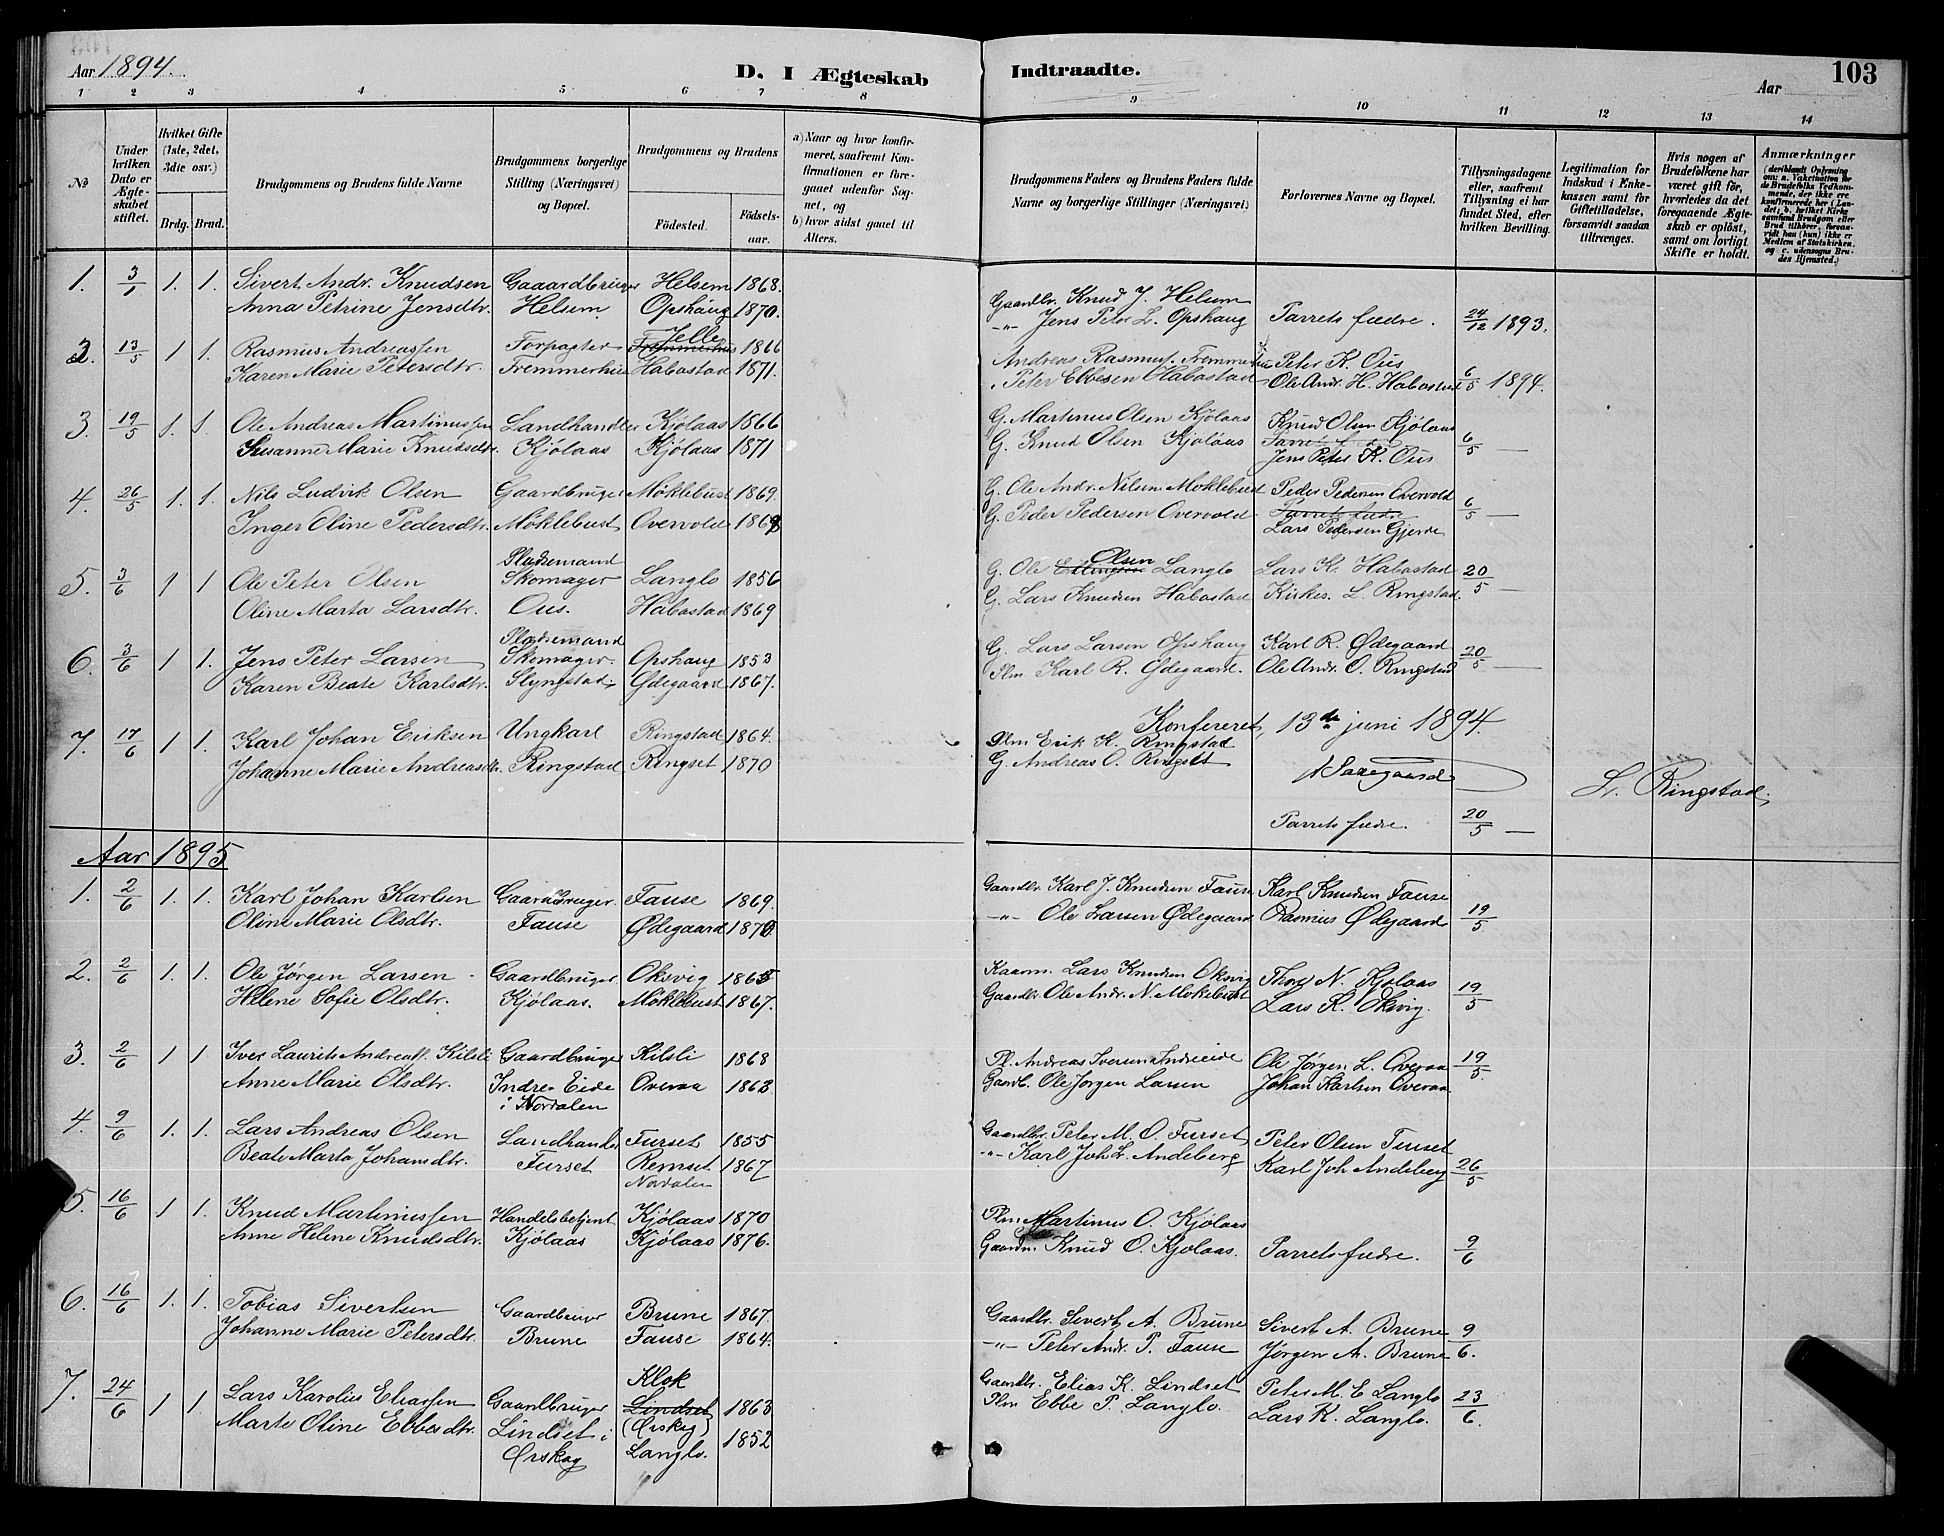 Aar 1894.
D. I Ægteskab
Indtraadte.
Aar
103
1 2 3 4 5 6 7 8 9 10 11 12 13 14
№
Under hvilken Dato er Ægteskabet stiftet.
Hvilket Gifte (1ste, 2det, 3die osv.)
Brdg. Brud.
Brudgommens og Brudens fulde Navne
Brudgommens borgerlige Stilling (Næringsvei) og Bopæl.
Brudgommens og Brudens
Fødested.
Fødselsaar.
a) Naar og hvor konfirmeret, saafremt Konfirmationen er foregaaet udenfor Sognet, og
b) hvor sidst gaaet til Alters.
Brudgommens Faders og Brudens Faders fulde Navne og borgerlige Stillinger (Næringsvei)
Forlovernes Navne og Bopæl.
Tillysningsdagene eller, saafremt Tillysning ei har fundet Sted, efter hvilken Bevilling.
Legitimation for Indskud i Enkekassen samt for Giftetilladelse, forsaavidt saadan tiltrænges.
Hvis nogen af Brudefolkene har været gift før, hvorledes da det foregaaende Ægteskab er opløst, samt om lovligt Skifte er holdt.
Anmærkninger (deriblandt Oplysning om: a. Vakcination for de Brudefolks Vedkommende, der ikke ere konfirmerede her i Landet; b. hvilket Kirkesamfund Brudgom eller Brud tilhører, forsaavidt han (hun) ikke er Medlem af Statskirken, og c. udensogns Brudes Hjemsted.)
1. 3/1 1. 1. Sivert Andr. Knudsen Gaaardbruger Helsem 1868. Gaardbr. Knud J. Helsem
Anna Petrine Jensdtr. Helsem. Opshaug 1870. -"- Jens Peter L. Opshaug Parrets fædre. 24/12 1893.
2. 13/5 1 1. Rasmus Andreassen Forpagter Fremmerhus Jelle 1866 Andreas Rasmus. Fremmerhus Peter K. Ous
Karen Marie Petersdtr. Fremmerhus Habostad 1871. Peter Ebbesen Habostad Ole Andr. H. Habostad 6/5 1894.
3. 19/5 1. 1. Ole Andreas Martinussen Landhandler Kjölaas 1866 G. Martinus Olsen Kjölaas Knud Olsen Kjölaas
Susanne Marie Knudsdtr. Kjölaas Kjölaas 1871 G. Knud Olsen Kjölaas Parrets fædre 6/5 —
Jens Peter K. Ous
4. 26/5 1. 1. Nils Ludvik Olsen Gaardbruger Møklebust 1869. G. Ole Andr. Nilsen Moklebust Peder Pedersen Overvold
Inger Oline Pedersdtr. Møklebust Overvold 1868 G. Peder Pedersen Overvold. Parrets fædre 6/5 —
Lars Pedersen Gjerde
5. 3/6 1 1 Ole Peter Olsen Pladsemand Skomager Langlo 1856 G. Ole Ellingsen Olsen Langlo Lars K. Habostad 20/5 —
Oline Marta Larsdtr. Ous. Habostad 1869 G. Lars Knudsen Habostad Kirkes. L. Ringstad.
6. 3/6 1 1. Jens Peter Larsen Pladsemand Skomager. Opshaug 1853 G. Lars Larsen Opshaug Karl R. Ødegaard 20/5 —
Karen Beate Karlsdtr. Slyngstad Ødegaard 1867. Plm. Karl R. Ødegaard. Ole Andr. O. Ringstad
Konfereret, 13de juni 1894.
7. 17/6 1 1. Karl Johan Eriksen Ungkarl Ringstad 1864. Plm Erik K. Ringstad
Johanne Marie Andreasdtr. Ringstad Ringset 1870 G. Andreas O. Ringset
L. Ringstad.
Parrets fædre. 20/5 —
Aar 1895
1. 2/6 1. 1. Karl Johan Karlsen Gaardbruger. Fause 1869. Gaardbr. Karl J. Knudsen Fause Karl Knudsen Fause
Oline Marie Olsdtr. Fause Ødegaard 1870. -"- Ole Larsen Ødegaard Rasmus Ødegaard 19/5
2. 2/6 1. 1. Ole Jørgen Larsen Gaardbruger. Oksvig 1865 Kaarm. Lars Knudsen Oksvig Thore N. Kjølaas
Helene Sofie Olsdtr. Kjölaas. Møklebust 1867. Gaardbr. Ole Andr. N. Moklebust Lars K. Oksvig. 19/5
3. 2/6 1 1 Iver Laurits Andreass. Kilsli Gaardbruger Kilsli 1868 Pl. Andreas Iversen Indreeide Ole Jørgen L. Overaa 19/5.
Anne Marie Olsdtr. Indre-Eide i Nordalen Overaa 1863 Gaardb. Ole Jørgen Larsen Johan Karlsen Overaa
4. 9/6 1. 1. Lars Andreas Olsen Landhandler Furset 1855 Gaardbr. Peter M. O. Furset Peter Olsen Furset
Beate Marta Johansdtr. Furset Remset Nordalen 1867 -"- Karl Joh. L. Andeberg Karl Joh Andeberg 26/5
5. 16/6 1 1. Knud Martinussen Handelsbetjent Kjölaas 1870 Plm. Martinus O. Kjölaas
Anne Helene Knudsdtr. Kjölaas Kjölaas 1876. Gaardm. Knud O. Kjölaas. Parrets fædre. 9/6
6. 16/6 1. 1. Tobias Sivertsen Gaardbruger Brune 1867. Gaardbr. Sivert A. Brune Sivert A. Brune 9/6.
Johanne Marie Petersdtr. Brune Fause 1864. -"- Peter Andr. P. Fause Jørgen A. Brune
7. 24/6 1 1 Lars Karolius Eliassen Gaardbruger Klok Lindset (Ørskog) 1863 Gaardbr. Elias K. Lindset Peter M. E Langlo 23/6.
Marte Oline Ebbesdtr. Lindset i Ørskog Langlo. 1852 Plm Ebbe P. Langlo. Lars K. Langlo.